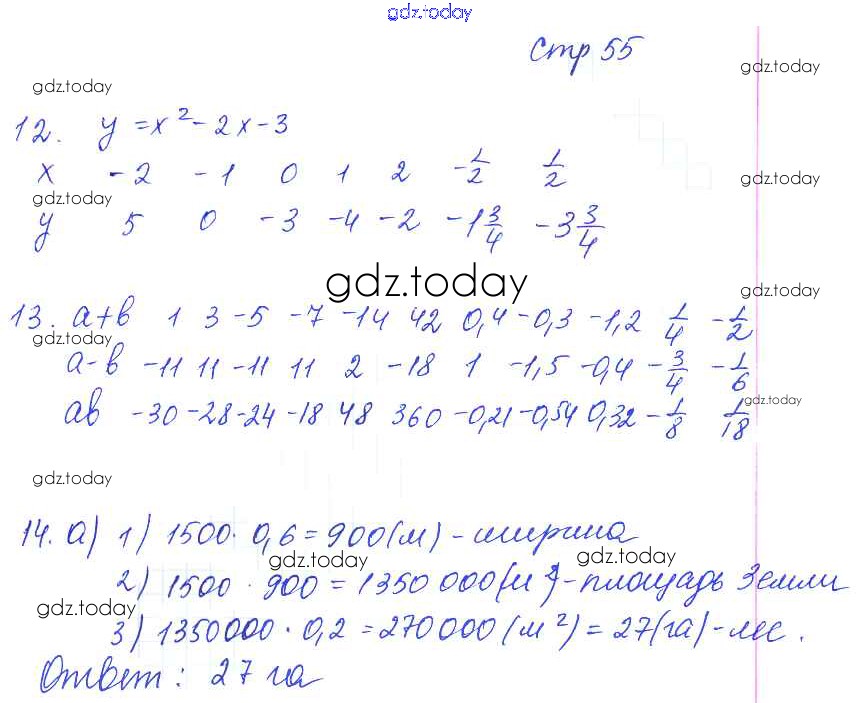 gdz.today
Стр 55
gdz.today
gdz.today
12. y = x² - 2x - 3
x -2 -1 0 1 2 -1/2 1/2
gdz.today
gdz.today
y 5 0 -3 -4 -2 -1 3/4 -3 3/4
gdz.today
gdz.today
13. a+b 1 3 -5 -7 -14 42 0,4 -0,3 -1,2 1/4 -1/2
gdz.today
a-b -11 11 -11 11 2 -18 1 -1,5 -0,4 -3/4 -1/6
gdz.today
ab -30 -28 -24 -18 48 360 -0,21 -0,54 0,32 -1/8 1/18
gdz.today
14. a) 1) 1500 · 0,6 = 900 (м) - ширина
gdz.today
gdz.today
2) 1500 · 900 = 1350 000 (м²) - площадь Земли
gdz.today
3) 1350000 · 0,2 = 270000 (м²) = 27 (га) - лес.
gdz.today
Ответ: 27 га